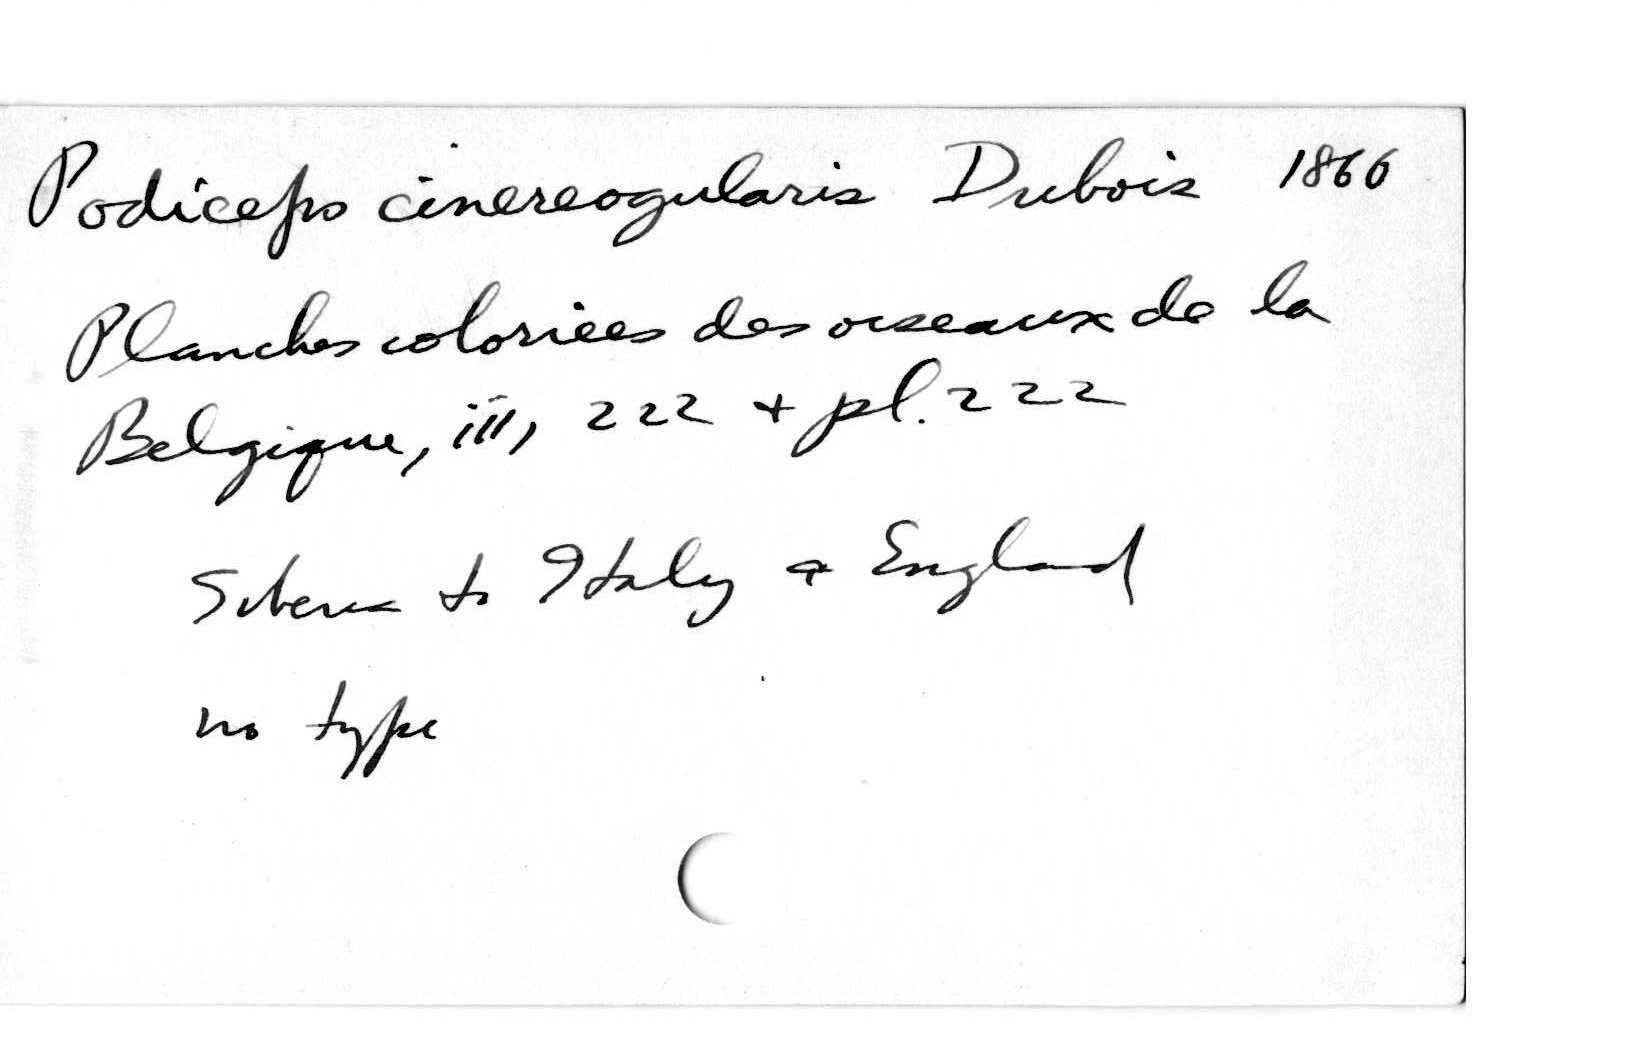 Podiceps cinereogularis Dubois 1860
Planches coloriees des oiseaux de la
Belgique, iii, 222 + pl. 222
Siberia to Italy & England
no type